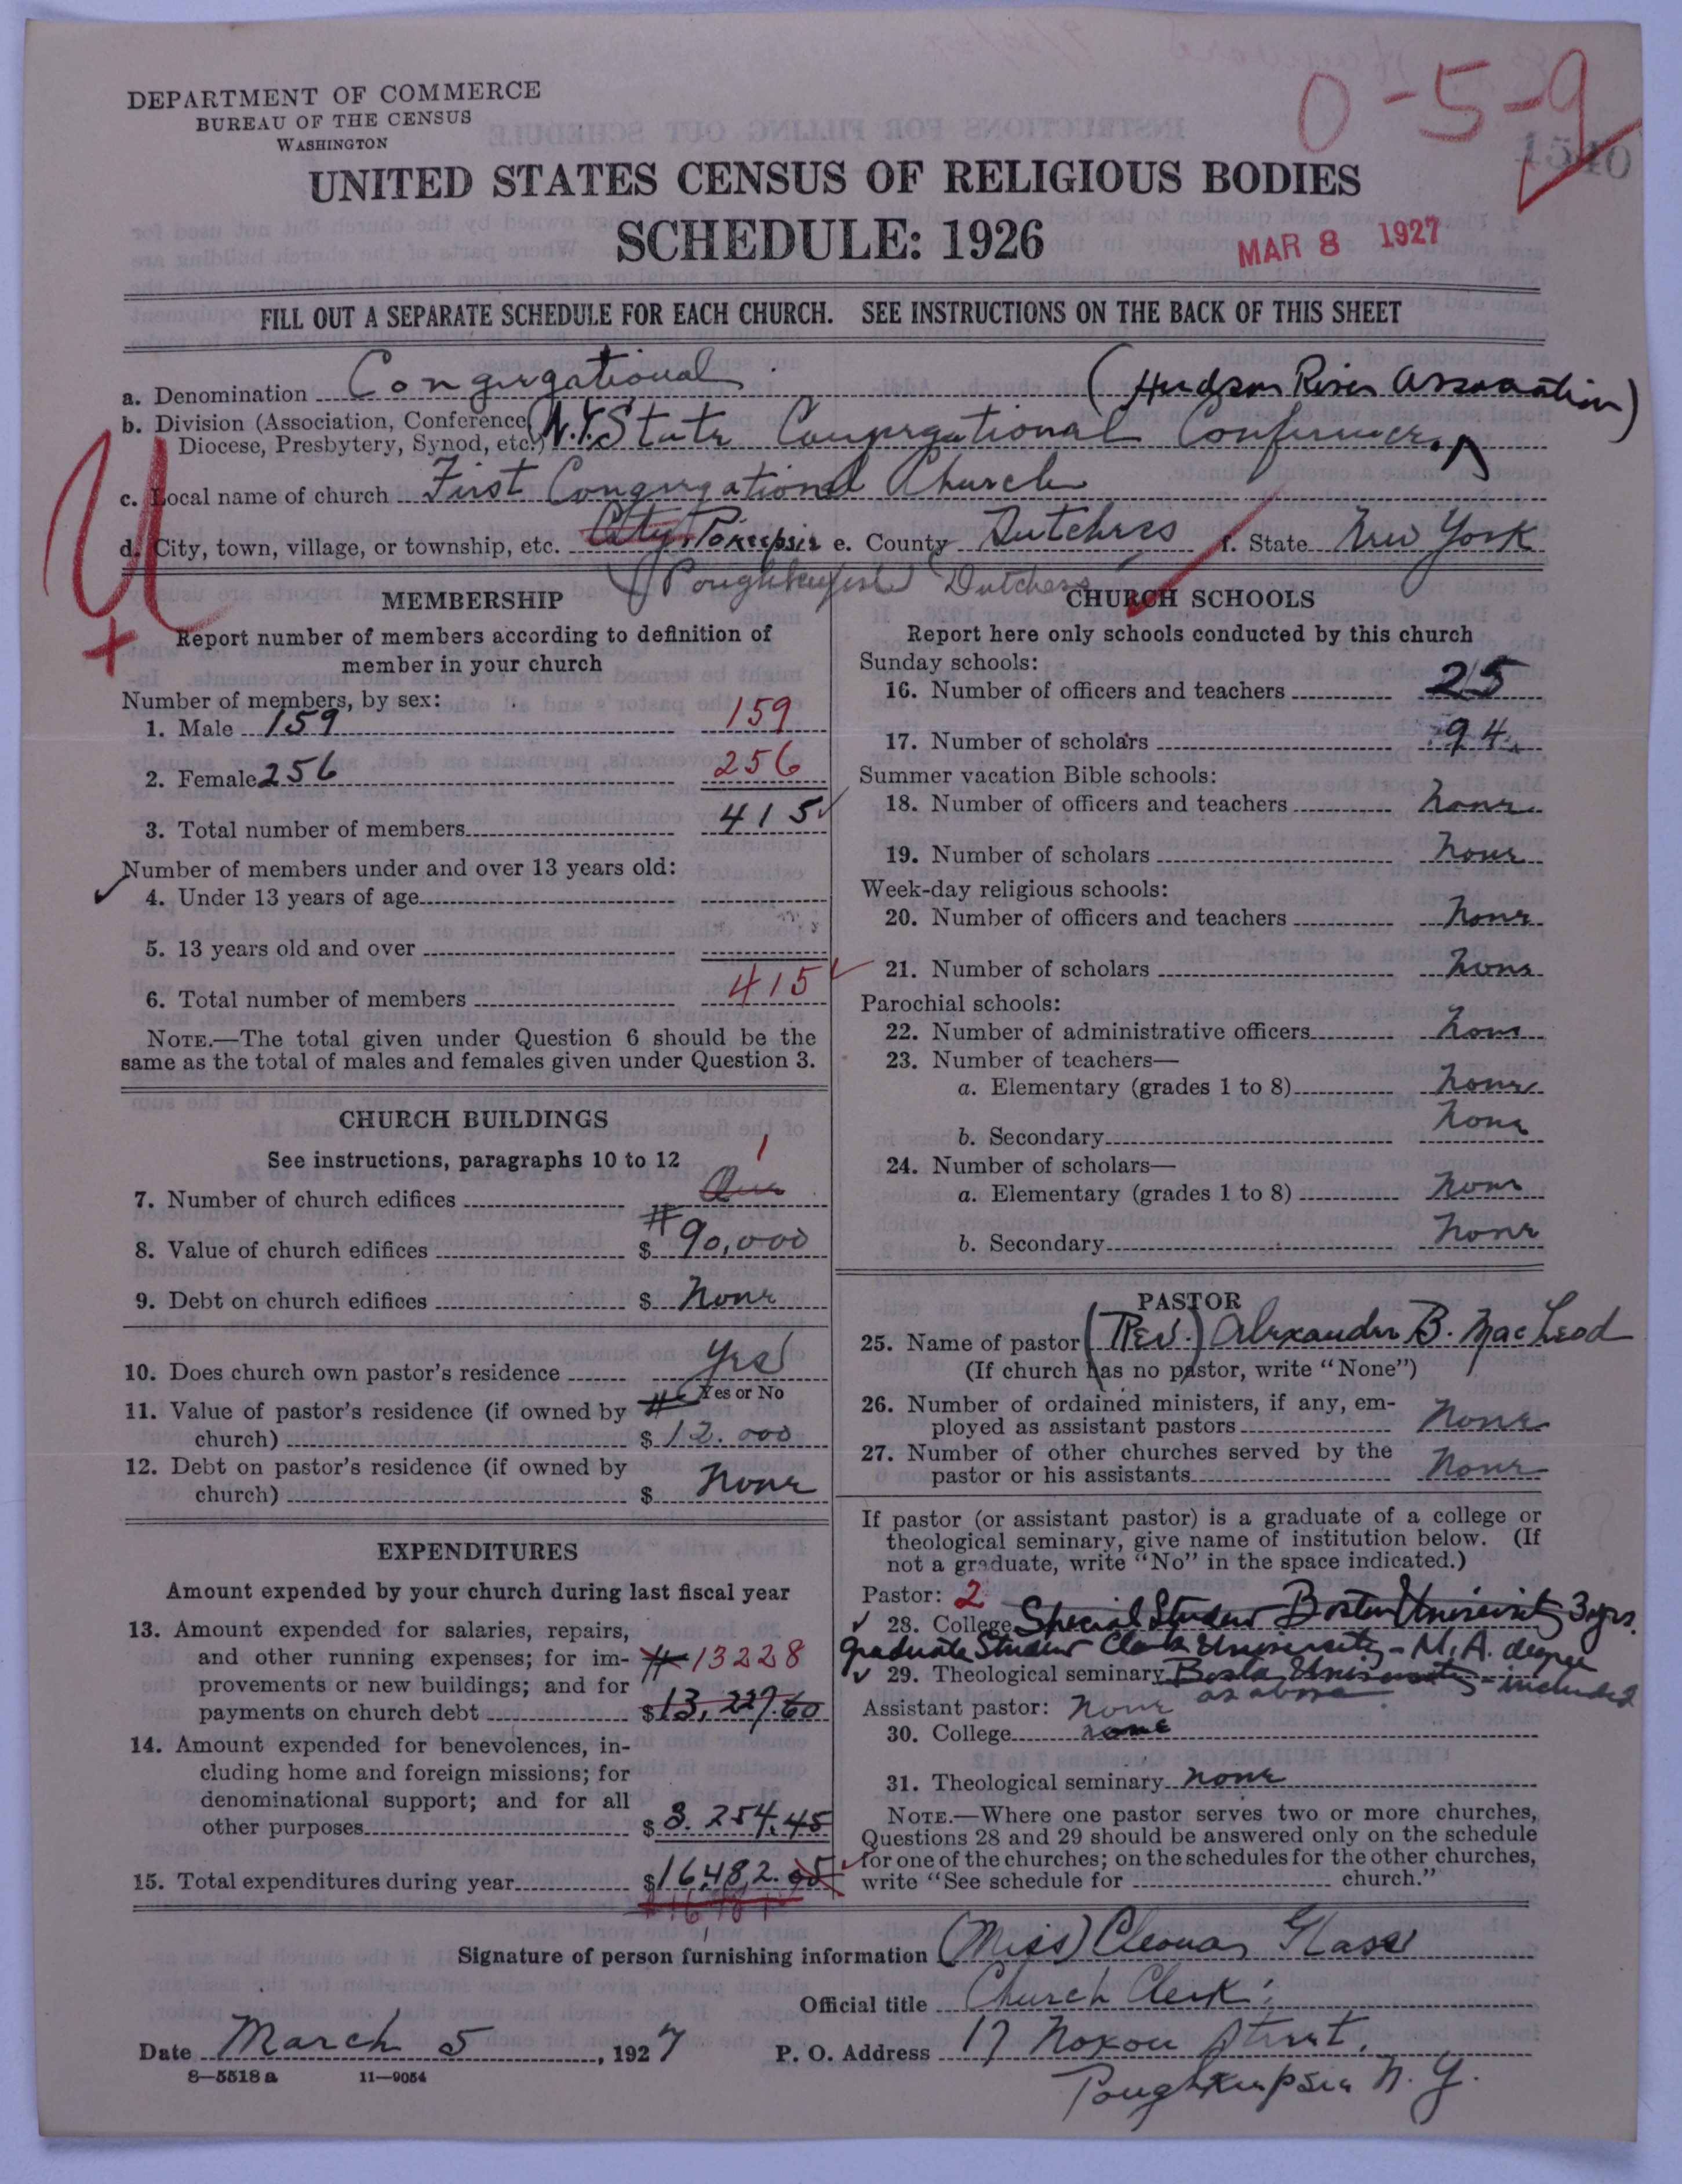 0-5-9
1540
DEPARTMENT OF COMMERCE
BUREAU OF THE CENSUS
WASHINGTON
UNITED STATES CENSUS OF RELIGIOUS BODIES
SCHEDULE: 1926
MAR 8 1927
FILL OUT A SEPARATE SCHEDULE FOR EACH CHURCH. SEE INSTRUCTIONS ON THE BACK OF THIS SHEET
a. Denomination Congregational (Hudson River Association)
b. Division (Association, Conference,
Diocese, Presbytery, Synod, etc.) N.Y. State Congregational Conference.
c. Local name of church First Congregational Church
d. City, town, village, or township, etc. City, Po'keepsie e. County Dutchess f. State New York
(Poughkeepsie) Dutchess
MEMBERSHIP
Report number of members according to definition of
member in your church
Number of members, by sex:
1. Male 159 159
2. Female 256 256
3. Total number of members 415
Number of members under and over 13 years old:
4. Under 13 years of age
5. 13 years old and over
6. Total number of members 415
NOTE.—The total given under Question 6 should be the
same as the total of males and females given under Question 3.
CHURCH BUILDINGS
See instructions, paragraphs 10 to 12
1
7. Number of church edifices One
8. Value of church edifices $ 90,000
9. Debt on church edifices $ None
10. Does church own pastor's residence Yes
Yes or No
11. Value of pastor's residence (if owned by
church) $ 12.000
12. Debt on pastor's residence (if owned by
church) $ None
EXPENDITURES
Amount expended by your church during last fiscal year
13. Amount expended for salaries, repairs,
and other running expenses; for im-
13228
provements or new buildings; and for
payments on church debt $ 13,227.60
14. Amount expended for benevolences, in-
cluding home and foreign missions; for
denominational support; and for all
other purposes $ 3.254.45
15. Total expenditures during year $ 16,482.05
CHURCH SCHOOLS
Report here only schools conducted by this church
Sunday schools:
16. Number of officers and teachers 25
17. Number of scholars 94
Summer vacation Bible schools:
18. Number of officers and teachers None
19. Number of scholars None
Week-day religious schools:
20. Number of officers and teachers None
21. Number of scholars None
Parochial schools:
22. Number of administrative officers None
23. Number of teachers—
a. Elementary (grades 1 to 8) None
b. Secondary None
24. Number of scholars—
a. Elementary (grades 1 to 8) None
b. Secondary None
PASTOR
25. Name of pastor (Rev.) Alexander B. MacLeod
(If church has no pastor, write "None")
26. Number of ordained ministers, if any, em-
ployed as assistant pastors None
27. Number of other churches served by the
pastor or his assistants None
If pastor (or assistant pastor) is a graduate of a college or
theological seminary, give name of institution below. (If
not a graduate, write "No" in the space indicated.)
Pastor: 2
28. College Special Student Boston University 3 yrs.
graduate Student Clark University - M.A. degree
29. Theological seminary Boston University - included
as above
Assistant pastor: None
30. College none
31. Theological seminary none
NOTE.—Where one pastor serves two or more churches,
Questions 28 and 29 should be answered only on the schedule
for one of the churches; on the schedules for the other churches,
write "See schedule for church."
Signature of person furnishing information (Miss) Glass
Official title Church Clerk.
Date March 5, 1927 P. O. Address 17 Noxon Street,
8—5518a 11—9054
Poughkeepsie N. Y.